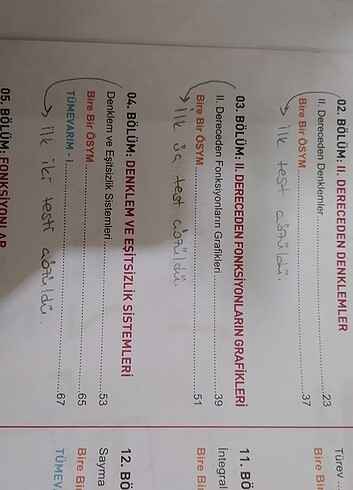 02. BÖLÜM: II. DERECEDEN DENKLEMLER
II. Dereceden Denklemler ..... 23
Bire Bir ÖSYM ..... 37
→ ilk test çözüldü.
03. BÖLÜM: II. DERECEDEN FONKSİYONLARIN GRAFİKLERİ
II. Dereceden Fonksiyonların Grafikleri ..... 39
Bire Bir ÖSYM ..... 51
→ ilk üç test çözüldü.
04. BÖLÜM: DENKLEM VE EŞİTSİZLİK SİSTEMLERİ
Denklem ve Eşitsizlik Sistemleri ..... 53
Bire Bir ÖSYM ..... 65
TÜMEVARIM - I ..... 67
→ ilk iki testi çözüldü.
05. BÖLÜM: FONKSİYONLAR
Türev ...
Bire Bi
11. BÖ
İntegral
Bire Bi
12. BÖ
Sayma
Bire Bi
TÜMEV